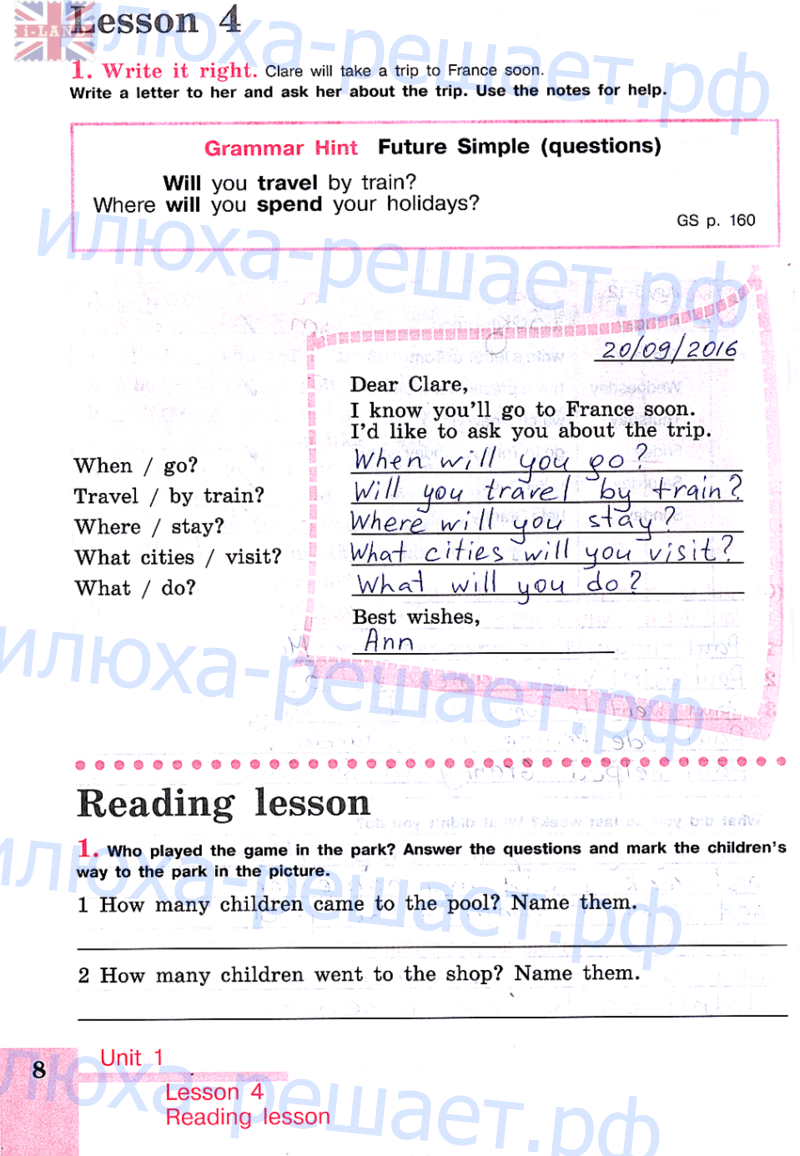 i-LAND
Lesson 4
илюха-решает.рф
1. Write it right. Clare will take a trip to France soon.
Write a letter to her and ask her about the trip. Use the notes for help.
Grammar Hint Future Simple (questions)
Will you travel by train?
Where will you spend your holidays?
GS p. 160
илюха-решает.рф
20/09/2016
Dear Clare,
I know you'll go to France soon.
I'd like to ask you about the trip.
When / go? When will you go?
Travel / by train? Will you travel by train?
Where / stay? Where will you stay?
What cities / visit? What cities will you visit?
What / do? What will you do?
Best wishes,
Ann
илюха-решает.рф
Reading lesson
1. Who played the game in the park? Answer the questions and mark the children's
way to the park in the picture.
илюха-решает.рф
1 How many children came to the pool? Name them.
2 How many children went to the shop? Name them.
8
Unit 1
Lesson 4
Reading lesson
илюха-решает.рф